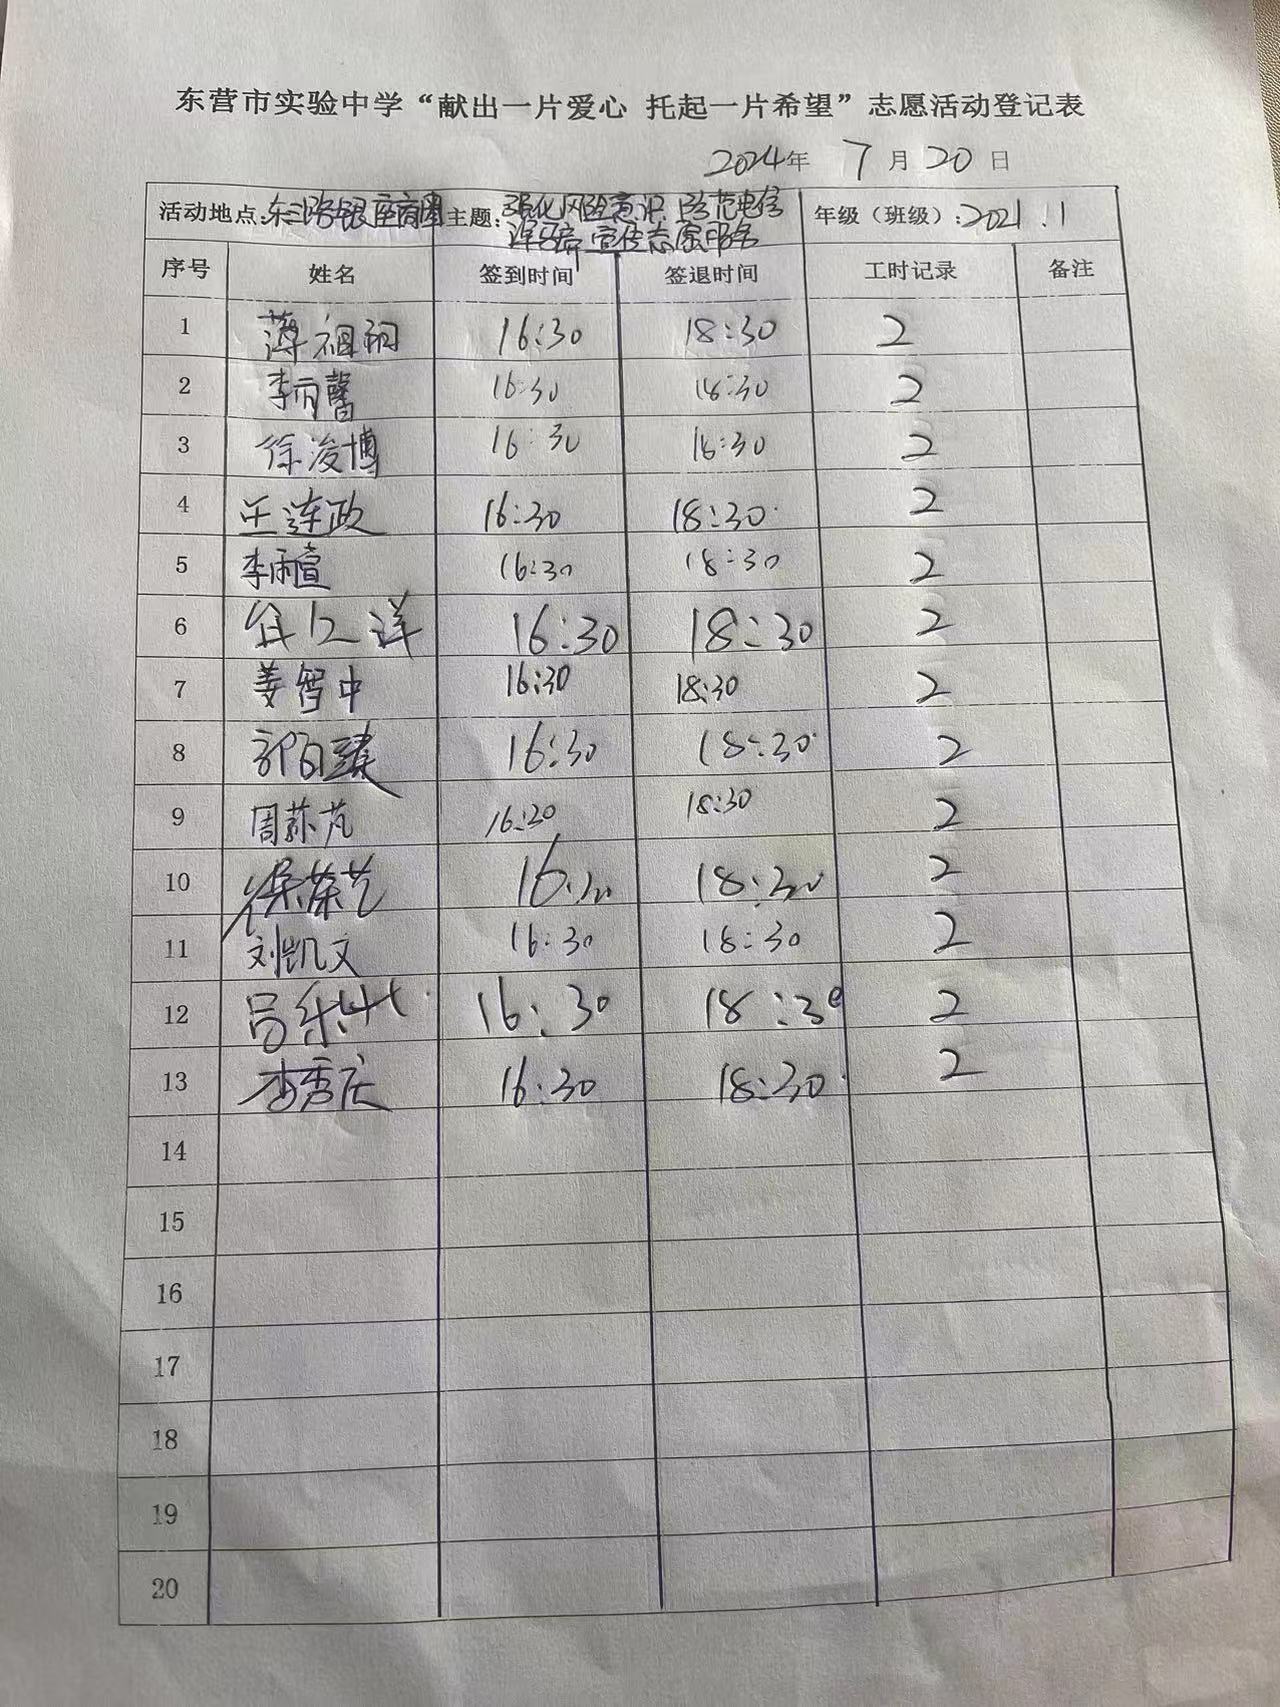 东营市实验中学“献出一片爱心 托起一片希望”志愿活动登记表
2024年 7月20日
活动地点:东三路银座商圈 主题:强化风险意识 防范电信诈骗 宣传志愿服务 年级(班级):2021.1
序号 姓名 签到时间 签退时间 工时记录 备注
1 薄祖 16:30 18:30 2
2 李 馨 16:30 18:30 2
3 徐浚博 16:30 18:30 2
4 王连政 16:30 18:30 2
5 李雨萱 16:30 18:30 2
6 洋 16:30 18:30 2
7 姜智中 16:30 18:30 2
8 16:30 18:30 2
9 周荪芃 16:30 18:30 2
10 徐荣艺 16:30 18:30 2
11 刘凯文 16:30 18:30 2
12 吕乐 16:30 18:30 2
13 李秀庆 16:30 18:30 2
14
15
16
17
18
19
20